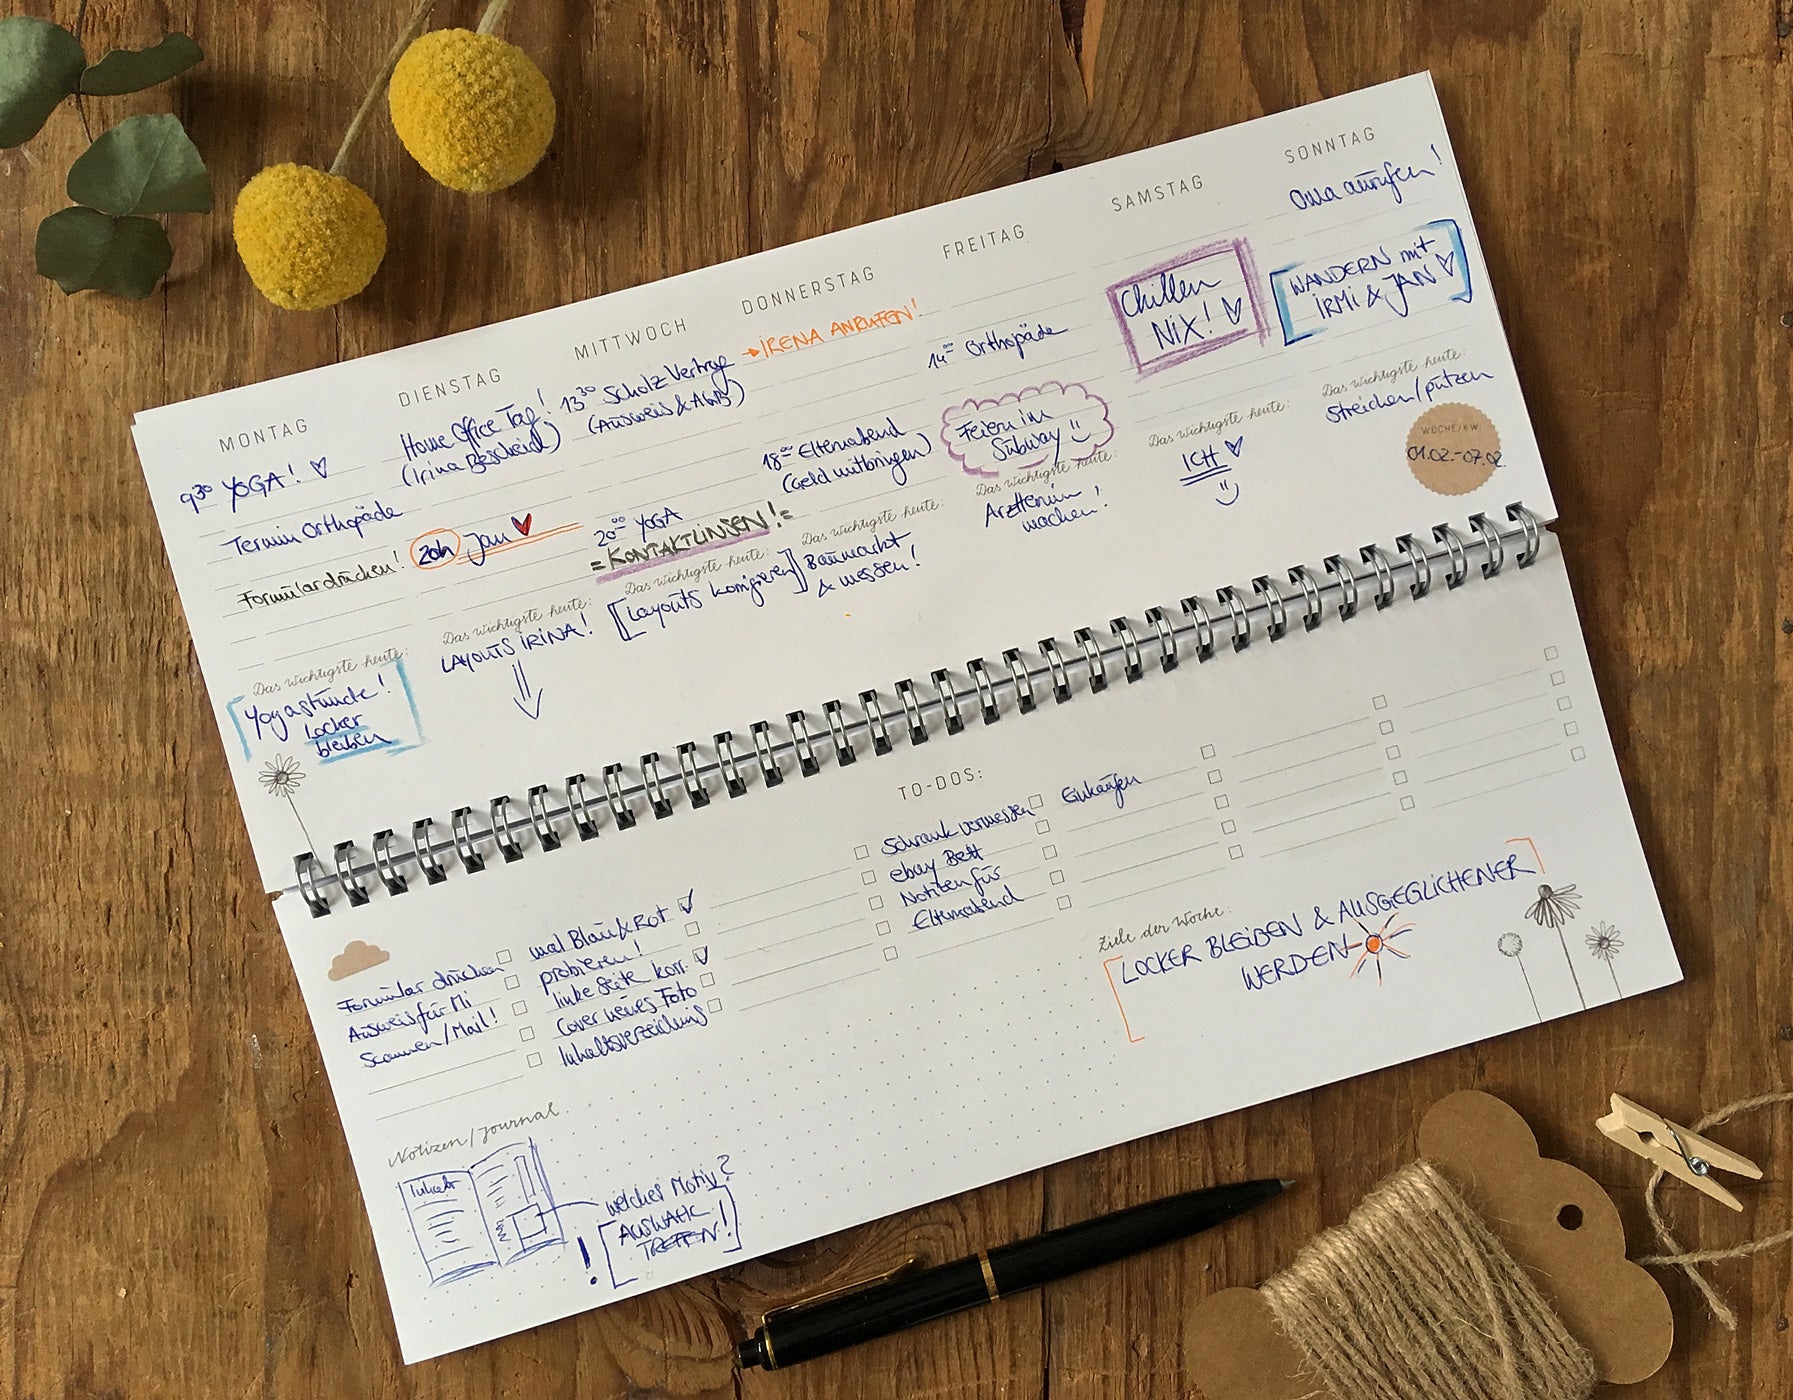 MONTAG
9³⁰ YOGA! ♡
Termin Orthopäde
Formular drucken!
Das Wichtigste heute:
Yogastunde!
Locker
bleiben
DIENSTAG
Home Office Tag!
(Irina Bescheid)
20h Jan ♥
Das Wichtigste heute:
LAYOUTS IRINA!
MITTWOCH
13³⁰ Scholz Vertrag
(Ausweis & AGB)
20⁰⁰ YOGA
=KONTAKTLINSEN!=
Das Wichtigste heute:
[Layouts korrigieren]
DONNERSTAG
→ IRENA ANRUFEN!
18⁰⁰ Elternabend
(Geld mitbringen)
Das Wichtigste heute:
Baumarkt
& messen!
FREITAG
14⁰⁰ Orthopäde
Feiern im
Subway
Das Wichtigste heute:
Arzttermin
machen!
SAMSTAG
Chillen
NIX! ♡
Das Wichtigste heute:
ICH ♡
SONNTAG
Oma anrufen!
[WANDERN mit
IRMI & JAN ♡]
Das Wichtigste heute:
Streichen/putzen
WOCHE/KW:
01.02.-07.02.
TO-DOS:
Formular drucken
Ausweis für Mi
Scannen/Mail!
mal Blau & Rot
probieren!
linke Seite korr.
Cover neues Foto
Inhaltsverzeichnis
Schrank vermessen
ebay Bett
Notizen für
Elternabend
Einkaufen
Ziele der Woche:
LOCKER BLEIBEN & AUSGEGLICHENER
WERDEN
Notizen/Journal
Inhalt
welches Motiv?
! [AUSWAHL
TREFFEN!]